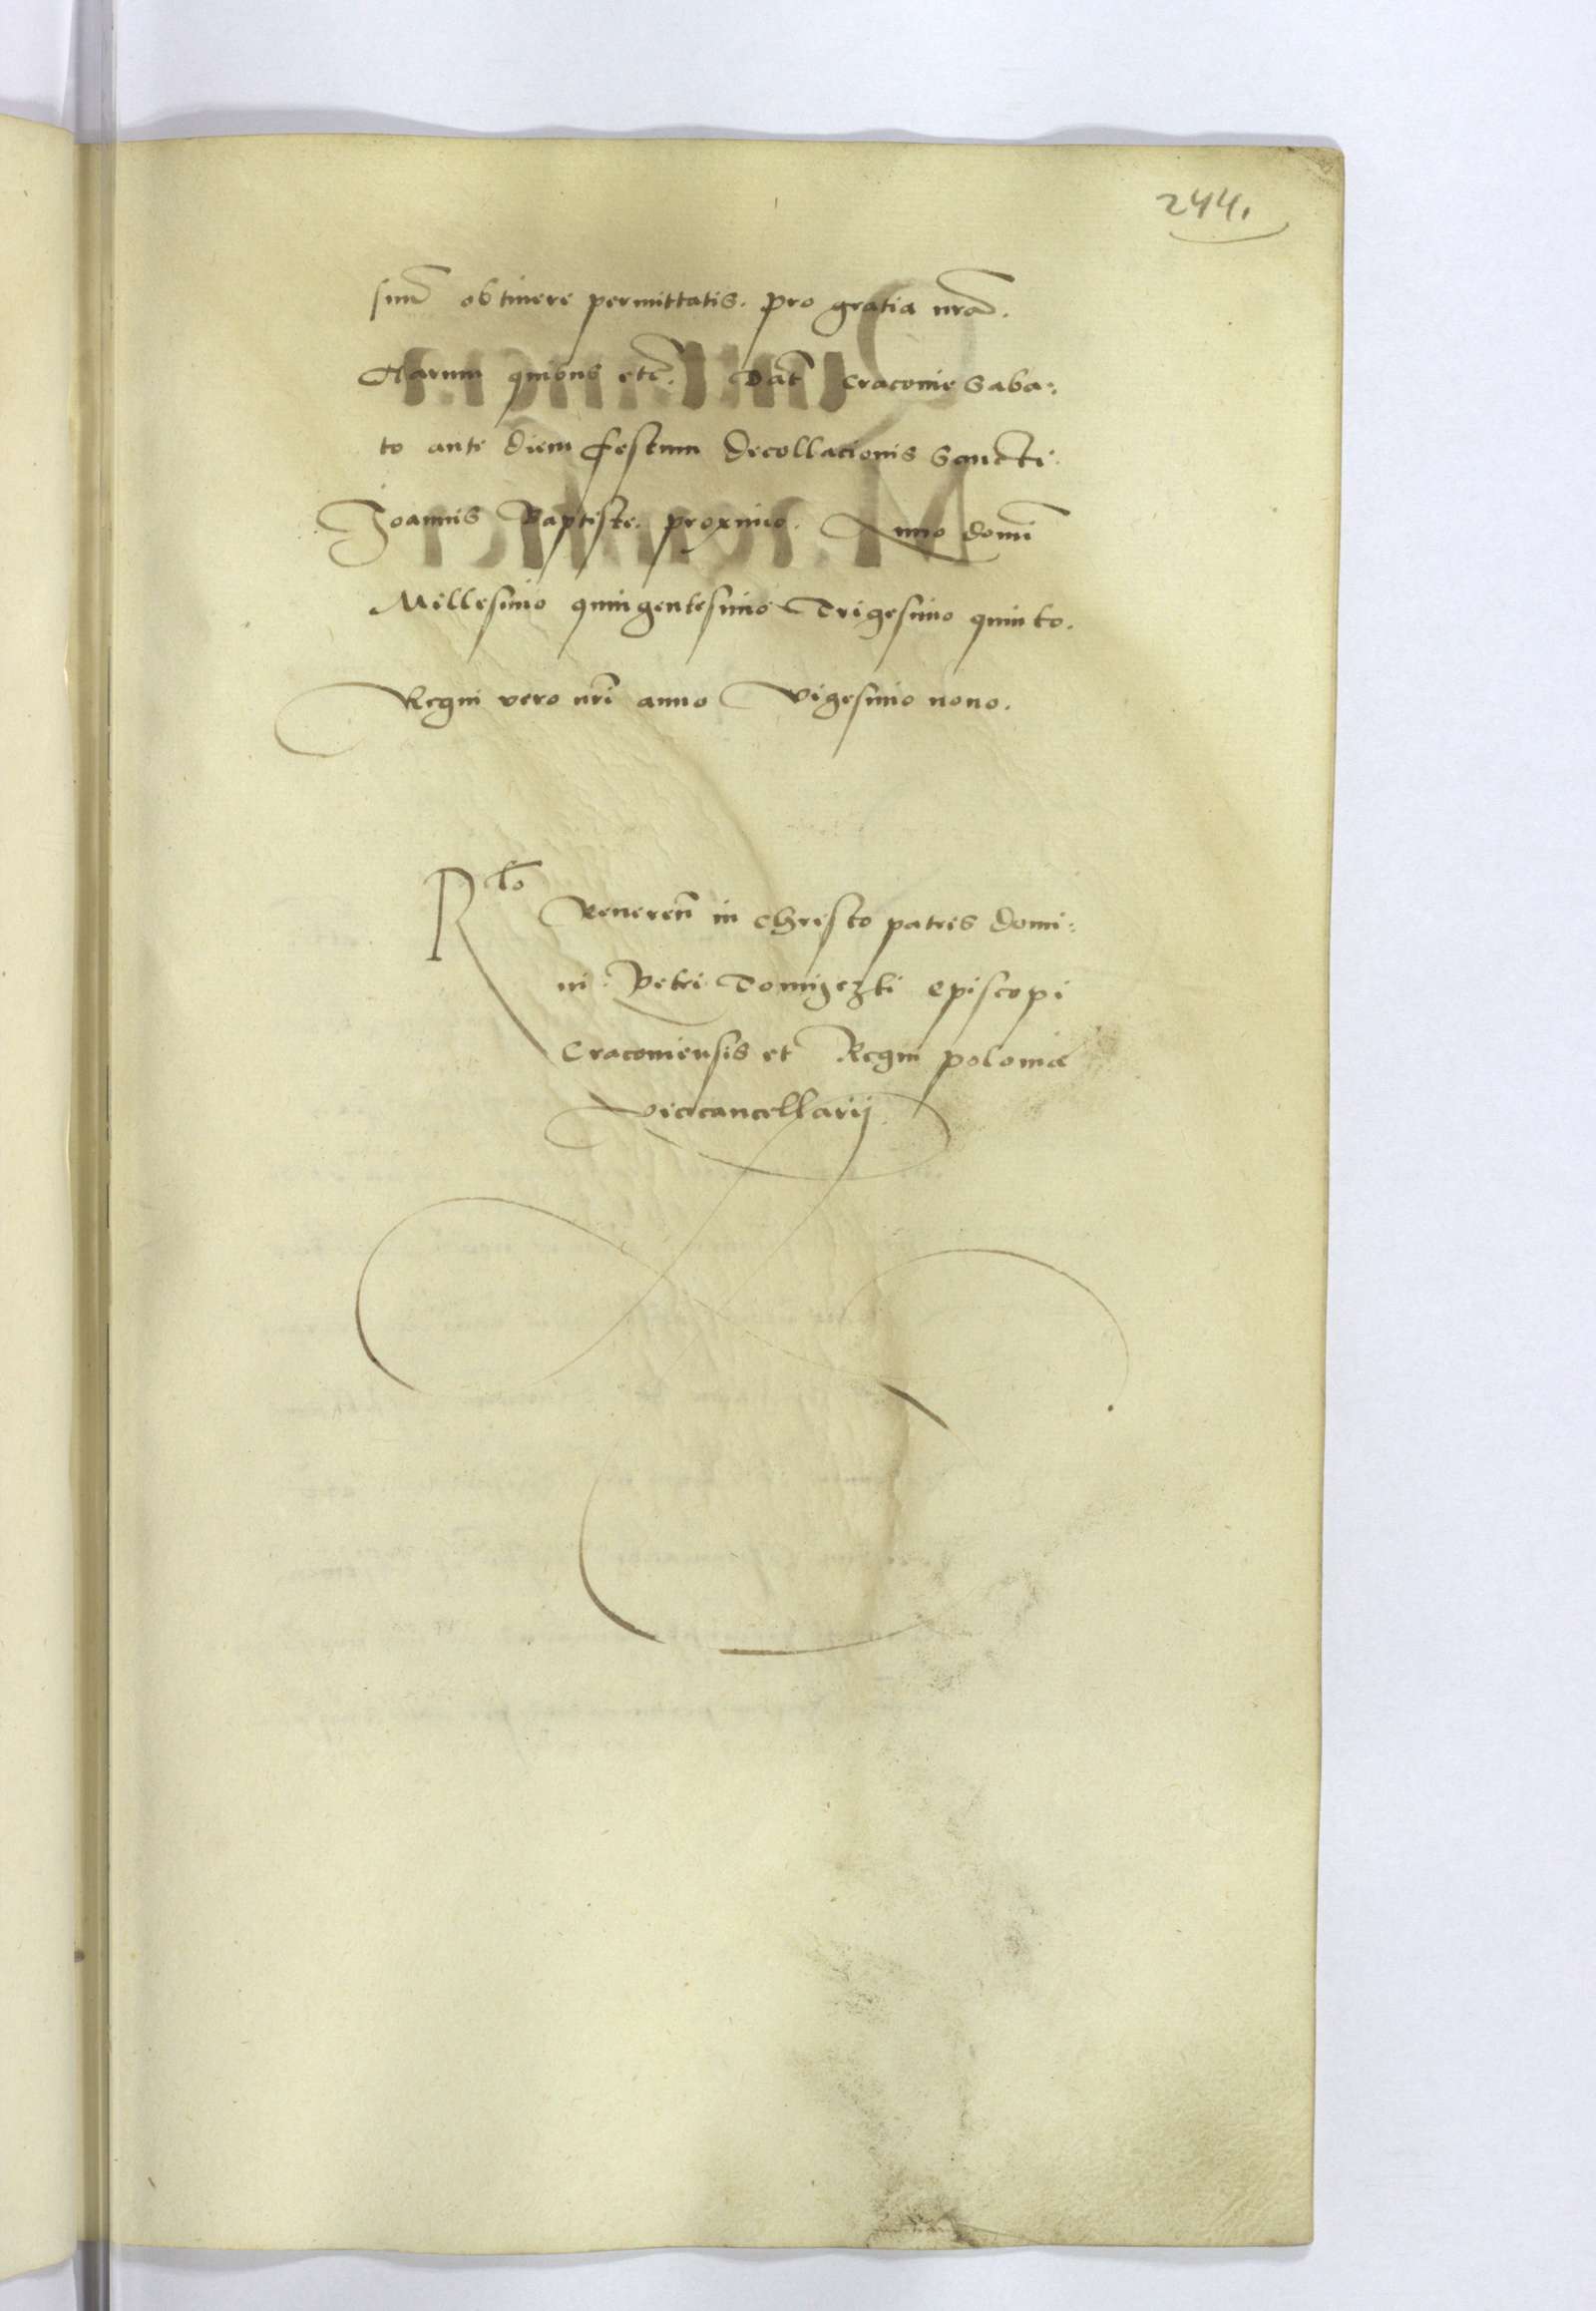 244.
sim̃ obtinere permittatis. pro gratia nr̃a.
Harum quibus etc̃. Dat̃ Cracovie Saba:
to ante diem festum Decollacionis Sancti
Joannis Baptiste. proximo. Anno domĩ
Millesimo quingentesimo Trigesimo quinto.
Regni vero nr̃i anno Vigesimo nono.
R l̃o Veneren̄ in Christo patris domi:
ni: Petri Tomiczki Episcopi
Cracoviensis et Regni polonie
vicecancellarij